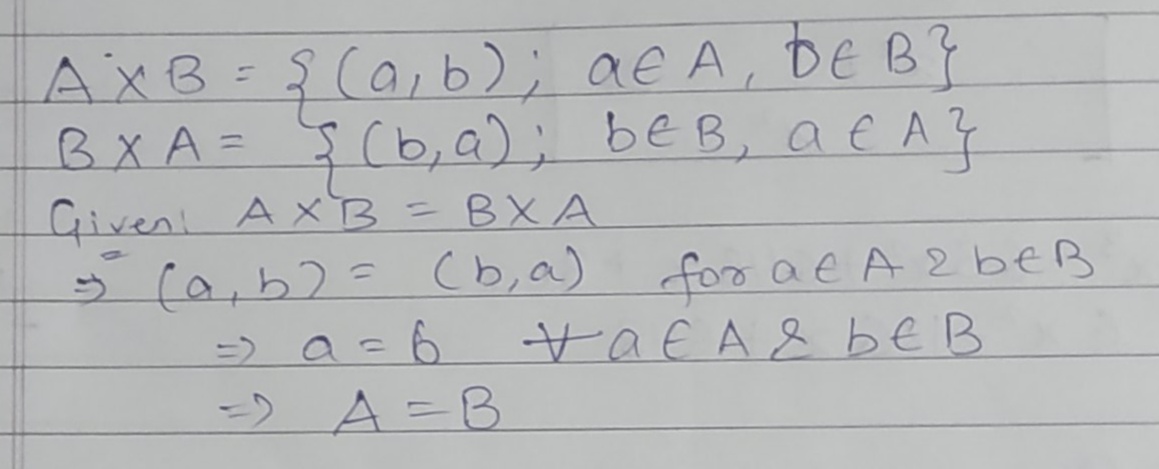 A × B = {(a,b); a∈A, b∈B}
B × A = {(b,a); b∈B, a∈A}
Given: A × B = B × A
⇒ (a,b) = (b,a) for a∈A & b∈B
⇒ a = b ∀ a∈A & b∈B
⇒ A = B